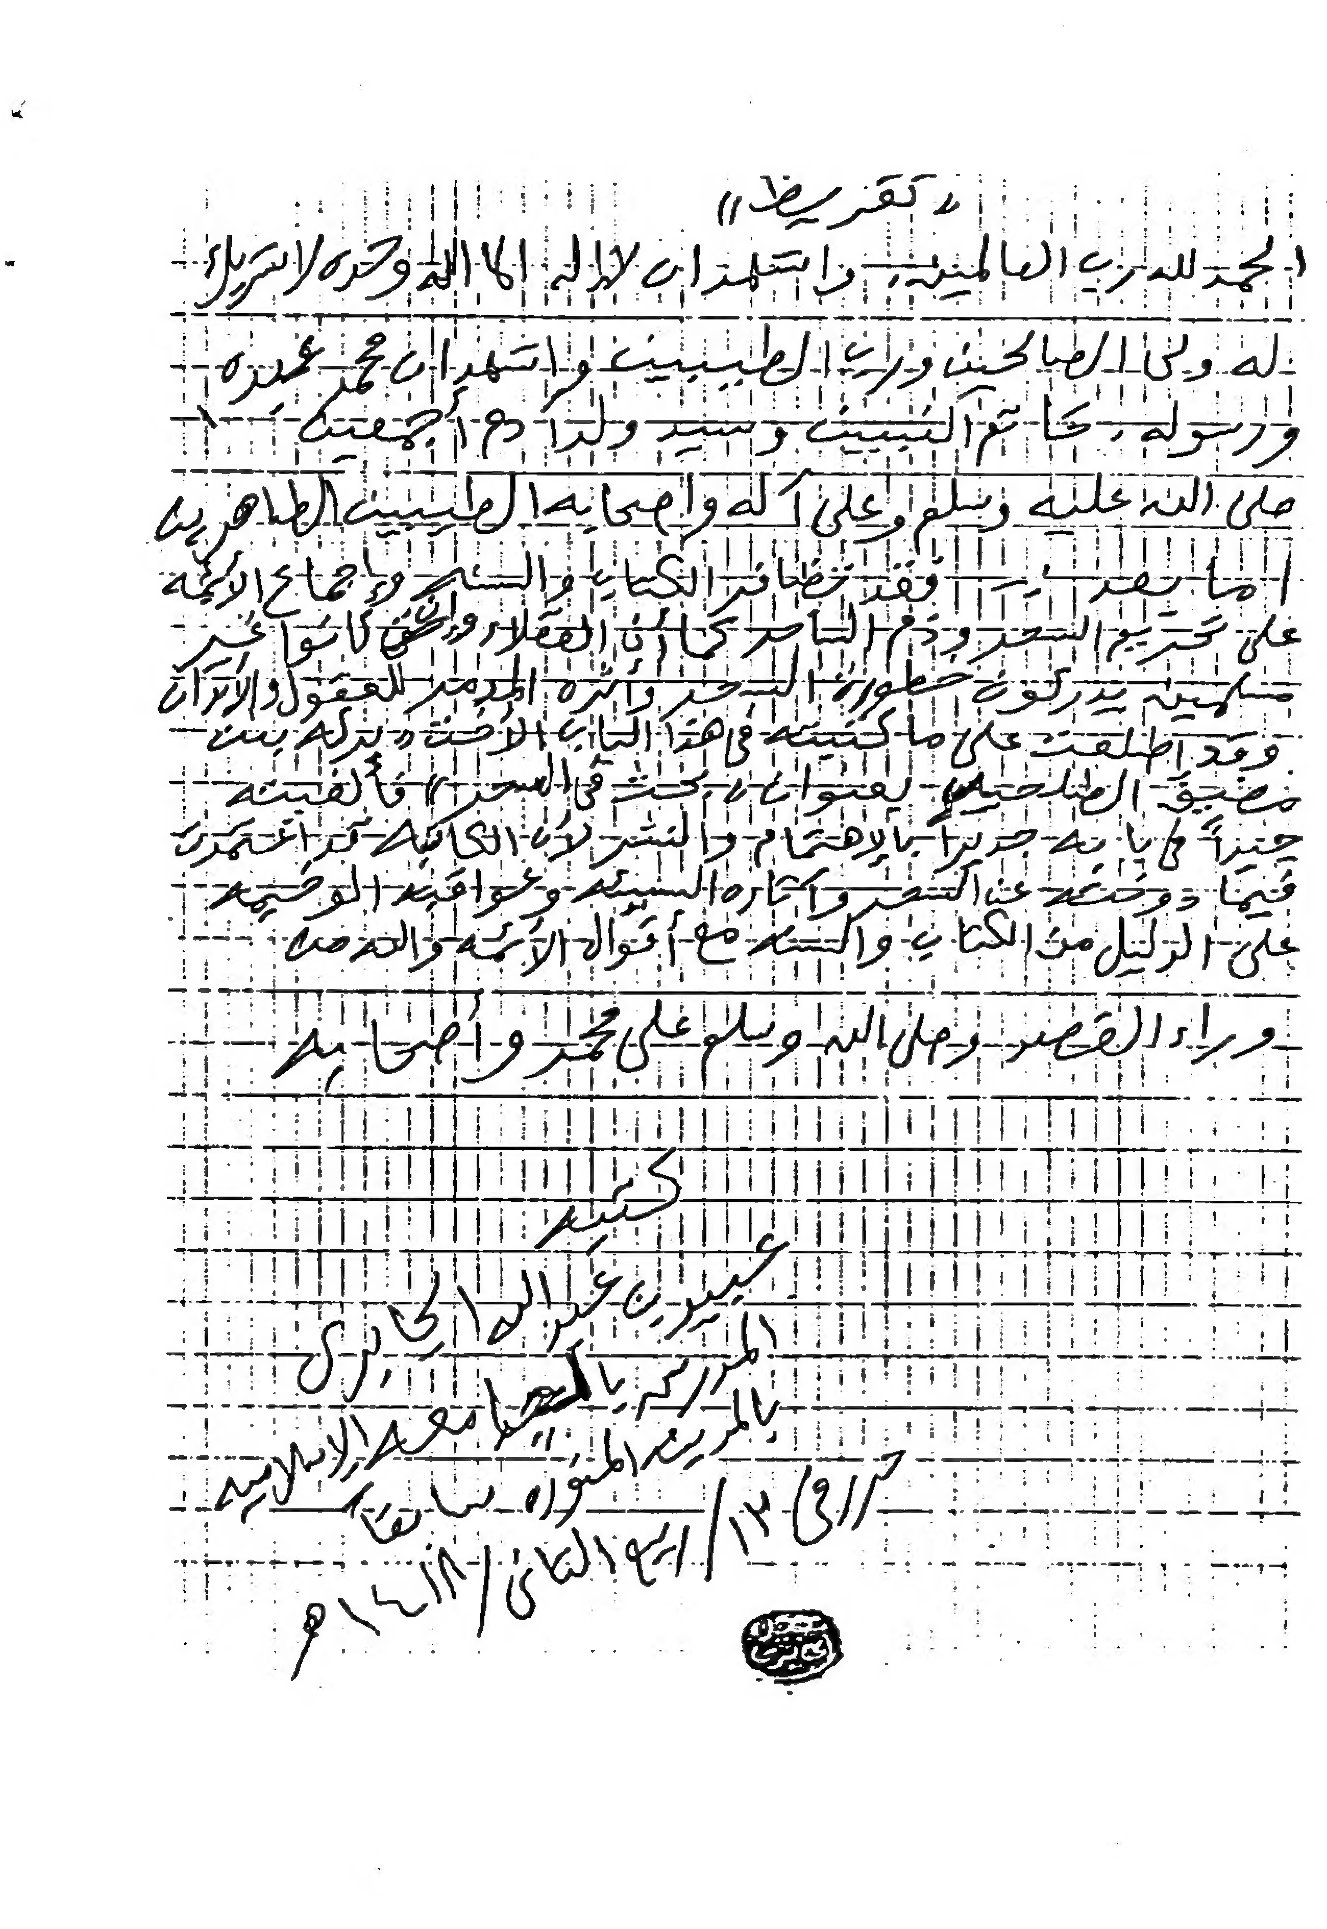 « تقريظ »
الحمد لله رب العالمين، واشهد ان لا إله الا الله وحده لا شريك
له ولي الصالحين ورب الطيبين واشهد ان محمد عبده
ورسوله، خاتم النبيين وسيد ولد آدم أجمعين
صلى الله عليه وسلم وعلى آله واصحابه الطيبين الطاهرين
اما بعد :ـ فقد تظافر الكتاب والسنه وإجماع الأئمه
على تحريم السحر وذم الساحر كما أن العقلاء وإن كانوا غير
مسلمين يدركون خطورة السحر وأثره المدمر للعقول والأبدان
وقد اطلعت على ما كتبته في هذا الباب الأخت، بركه بنت
مضيق الطلحي بعنوان « بحث في السحر » فألفيته
جيداً في بابه جديراً بالإهتمام والنشر لأن الكاتبه قد اعتمدت
فيما دونته عن السحر وآثاره السيئه وعواقبه الوخيمه
على الدليل من الكتاب والسنه مع أقوال الأئمه والله من
وراء القصد وصلى الله وسلم على محمد وأصحابه
كتبه
عبيد بن عبدالله الجابري
المدرس بالجامعه الإسلاميه
بالمدينه المنوره سابقاً
حرر في ١٣ / ربيع الثاني / ١٤١٨ هـ